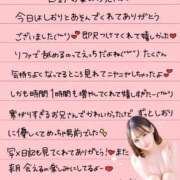 今日はしおりとあそんでくれてありがとう
ございました(ˊᵕˋ) 即尺つけてくれて嬉しかった
リファで舐めるのってえっちだよね(ˊᵕˋ) たくさん
気持ちよくなってるところ見れてニヤニヤしちゃったよ
しかも時間1時間も増やしてくれて嬉しすぎたっ
寒がりすぎるお兄さんでかわいかったけど ずっとしおり
に優しくてめっちゃ紳士でした
写メ日記も見てくれてありがとう! また
来月 会えるの楽しみにしてるよ~